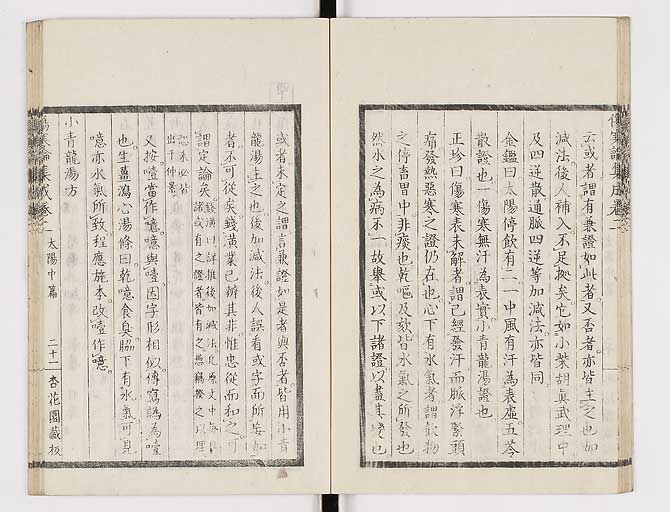 傷寒論集成卷二
云或者謂有兼證如此者又否者亦皆主之也如
減法後人補入不足據矣它如小柴胡真武理中
及四逆散通脈四逆等加減法亦皆同
金鑑曰太陽停飲有二一中風有汗為表虛五苓
散證也一傷寒無汗為表實小青龍湯證也
正珍曰傷寒表未解者謂已經發汗而脈浮緊頭
痛發熱惡寒之證仍在也心下有水氣者謂飲物
之停畜胃中非痰也乾嘔及欬皆水氣之所發也
然水之為病不一故舉或以下諸證以盡其變也
或者未定之謂言兼證如是者與否者皆用小青
龍湯主之也後加減法後人誤看或字而所
者不可從矣錢潢業已辨其非惟忠從而和之可
謂定論矣錢潢曰詳推後加減法凡原文中每具
諸或有之證者皆有之愚竊揆之以理
恐未必皆
出于仲景
又按噎當作噫噫與噎因字形相似傳寫譌為噎
也生薑瀉心湯條曰乾噫食臭脇下有水氣可見
噫亦水氣所致程應旄本改噎作噫
小青龍湯方
傷寒論集成卷二 太陽中篇 二十一 杏花園藏板